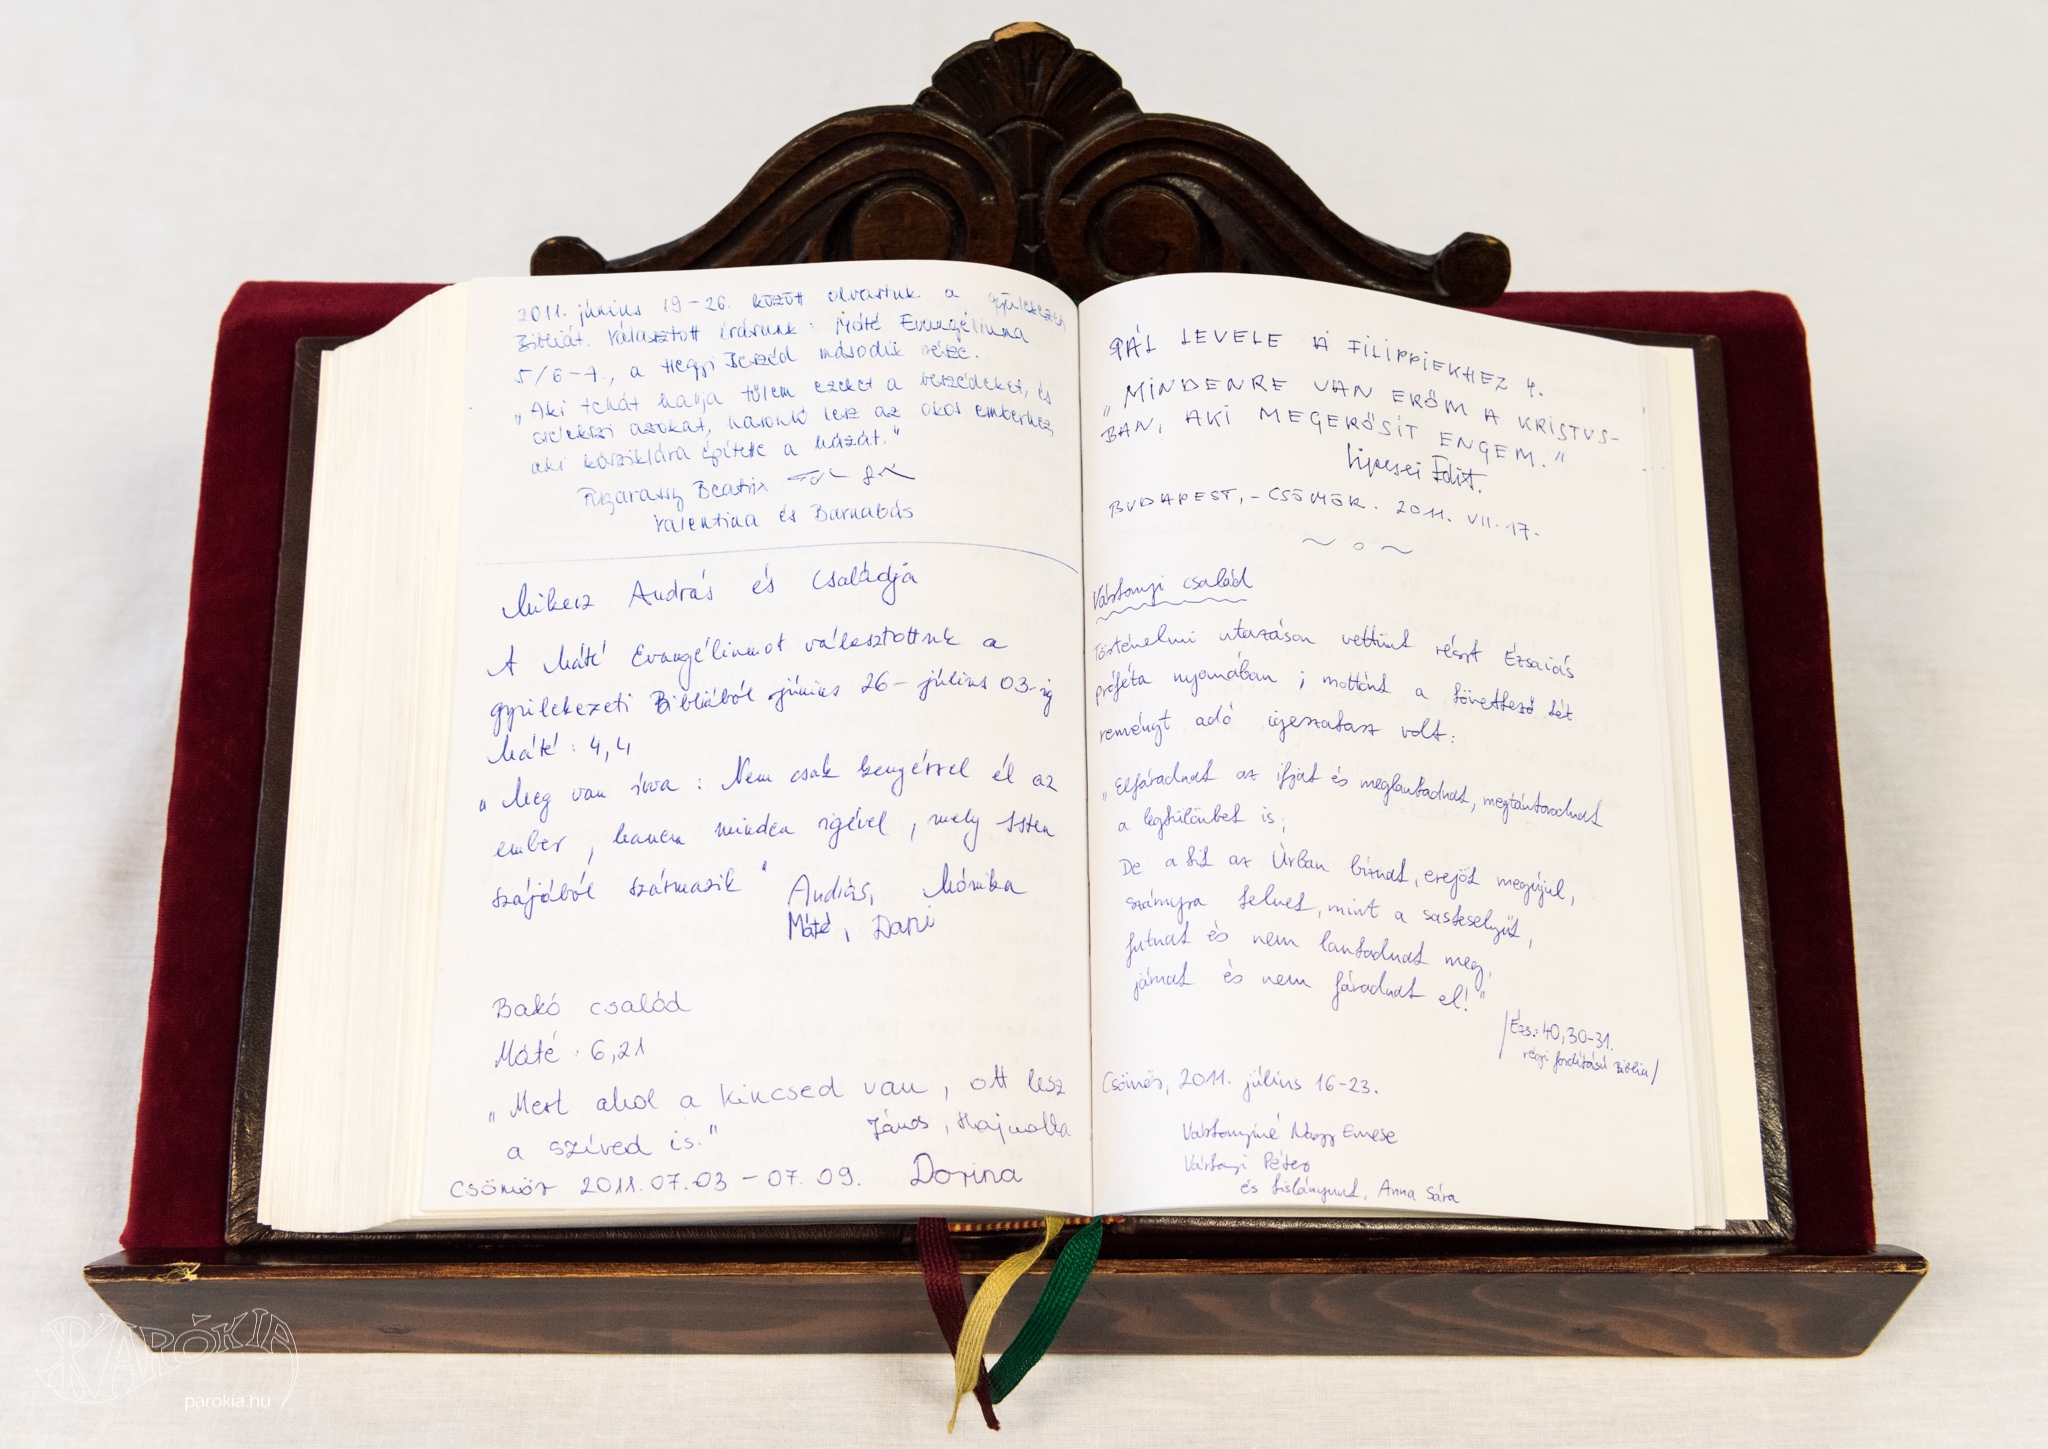 2011. június 19-26. között olvastuk a gyülekezeti
Bibliát. Választott írásunk: Máté Evangéliuma
5/6-7., a Hegyi Beszéd második része.
„Aki tehát hallja tőlem ezeket a beszédeket, és
cselekszi azokat, hasonló lesz az okos emberhez,
aki kősziklára építette a házát."
Fogarassy Beatrix
Valentina és Barnabás
Mikesz András és Családja
A Máté Evangéliumot választottuk a
gyülekezeti Bibliából június 26- július 03-ig
Máté: 4,4
„Meg van írva: Nem csak kenyérrel él az
ember, hanem minden igével, mely Isten
szájából származik"
András, Mónika
Máté, Dani
Bakó család
Máté: 6,21
„Mert ahol a kincsed van, ott lesz
a szíved is."
János, Hajnalka
Csömör 2011.07.03 - 07.09. Dorina
PÁL LEVELE A FILIPPIEKHEZ 4.
„MINDENRE VAN ERŐM A KRISTUS-
BAN, AKI MEGERŐSÍT ENGEM."
Edit.
BUDAPEST, - CSÖMÖR. 2011. VII. 17.
Várkonyi család
Történelmi utazáson vettünk részt Ézsaiás
próféta nyomában; mottónk a következő két
reményt adó igeszakasz volt:
„Elfáradnak az ifjak és meglankadnak, megtántorodnak
a legkülönbek is;
De a kik az Úrban bíznak, erejök megújul,
szárnyra kelnek, mint a saskeselyűk,
futnak és nem lankadnak meg,
járnak és nem fáradnak el!"
/Ézs.: 40,30-31.
régi fordítású Biblia/
Csömör, 2011. július 16-23.
Várkonyiné Nagy Emese
Várkonyi Péter
és kislányunk, Anna Sára
PARÓKIA
parokia.hu